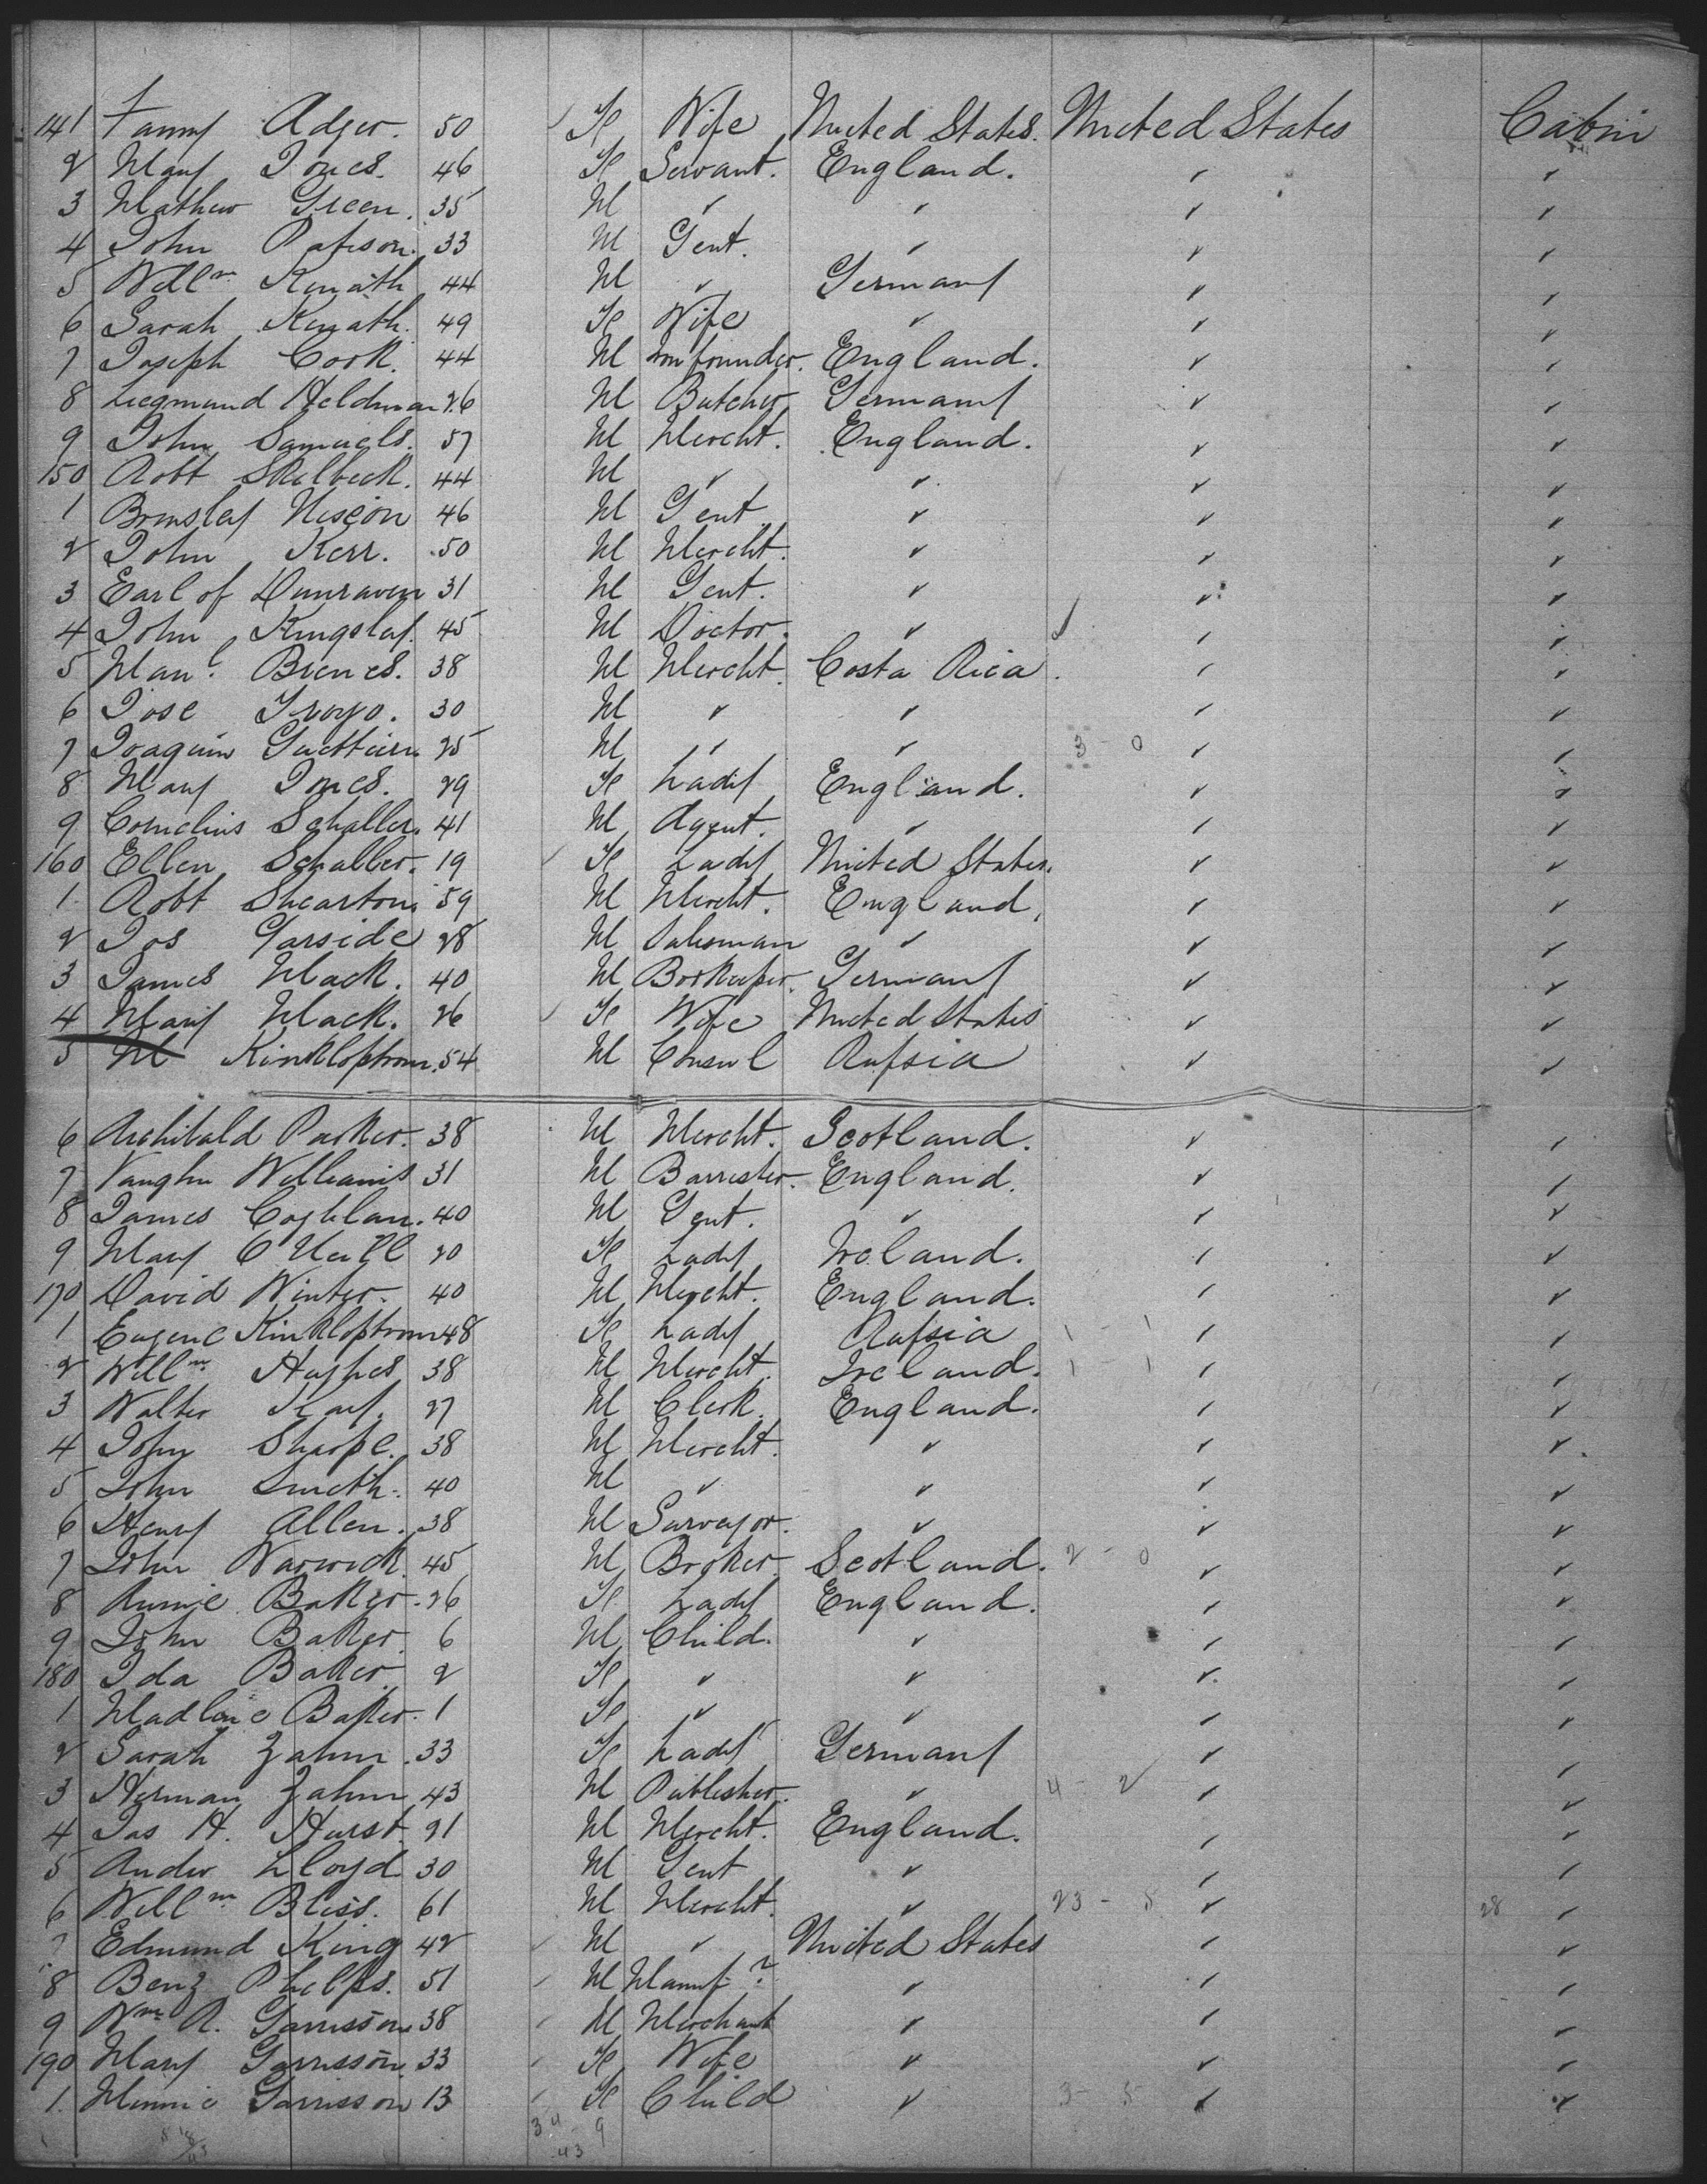 141 Fanny Adger. 50 F Wife United States. United States Cabin
2 Mary Jones. 46 F Servant. England. ✓ ✓
3 Mathew Green. 35 M ✓ ✓ ✓ ✓
4 John 33 M Gent. ✓ ✓ ✓
5 Willm 44 M ✓ Germany ✓ ✓
6 Sarah 49 F Wife ✓ ✓ ✓
7 Joseph Cook. 44 M Iron founder. England. ✓ ✓
8 Heldman 26 M Butcher Germany ✓ ✓
9 John Samuels. 57 M Mercht. England. ✓ ✓
150 Robt Skelbeck. 44 M ✓ ✓ ✓ ✓
1 Brinsley 46 M Gent ✓ ✓ ✓
2 John Kerr. 50 M Mercht. ✓ ✓ ✓
3 Earl of Dunraven 31 M Gent. ✓ ✓ ✓
4 John Kingsley. 45 M Doctor. ✓ ✓ ✓
5 Manl. 38 M Mercht. Costa Rica. ✓ ✓
6 Jose Troyo. 30 M ✓ ✓ ✓ ✓
7 Joaquin 25 M ✓ ✓ 3 - 0 ✓ ✓
8 Mary Jones. 29 F Lady England. ✓ ✓
9 Cornelius Schaller. 41 M Agent. ✓ ✓ ✓
160 Ellen Schaller. 19 F Lady United States. ✓ ✓
1 Robt Shearton. 59 M Mercht. England. ✓ ✓
2 Jos Garside 28 M Salesman ✓ ✓ ✓
3 James Mack. 40 M Bookeeper. Germany ✓ ✓
4 Mary Mack. 26 F Wife United States ✓ ✓
5 M 54 M Consul Russia ✓ ✓
6 Archibald Parker. 38 M Mercht. Scotland. ✓ ✓
7 Vaughn Williams 31 M Barrister. England. ✓ ✓
8 James Coghlan. 40 M Gent. ✓ ✓ ✓
9 Mary O'Neill 20 F Lady Ireland. ✓ ✓
170 David Winter. 40 M Mercht. England. ✓ ✓
1 Eugene 48 F Lady Russia 1 - 1 ✓ ✓
2 Willm Hughes 38 M Mercht. Ireland. 1 - 1 ✓ ✓
3 Walter 27 M Clerk. England. ✓ ✓
4 John Sharpe. 38 M Mercht. ✓ ✓ ✓
5 John Smith. 40 M ✓ ✓ ✓ ✓
6 Henry Allen. 38 M Surveyor. ✓ ✓ ✓
7 John Warwick. 45 M Broker Scotland. 2 - 0 ✓ ✓
8 Annie Baker. 26 F Lady England. ✓ ✓
9 John Baker 6 M Child. ✓ ✓ ✓
180 Ida Baker. 2 F ✓ ✓ ✓ ✓
1 Madline Baker. 1 F ✓ ✓ ✓ ✓
2 Sarah Zahm. 33 F Lady Germany ✓ ✓
3 Herman Zahm 43 M Publisher. ✓ 4 - 2 ✓ ✓
4 Jas H. Hurst. 21 M Mercht. England. ✓ ✓
5 Andw Lloyd 30 M Gent ✓ ✓ ✓
6 Willm Bliss. 61 M Mercht. ✓ 23 - 5 ✓ 28 ✓
7 Edmund King 42 M ✓ United States ✓ ✓
8 Benj Phelps. 51 M Manuf ? ✓ ✓ ✓
9 Wm R. Garrisson 38 M Merchant ✓ ✓ ✓
190 Mary Garrisson. 33 F Wife ✓ ✓ ✓
1. Minnie Garrisson 13 F Child ✓ 3 - 5 ✓ ✓
34 9
43